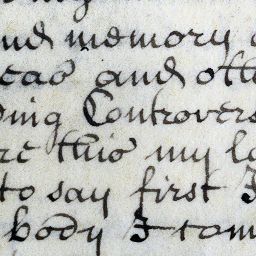 and memory
eas and oth
oing Controvers
re this my la
to say first I
body I com